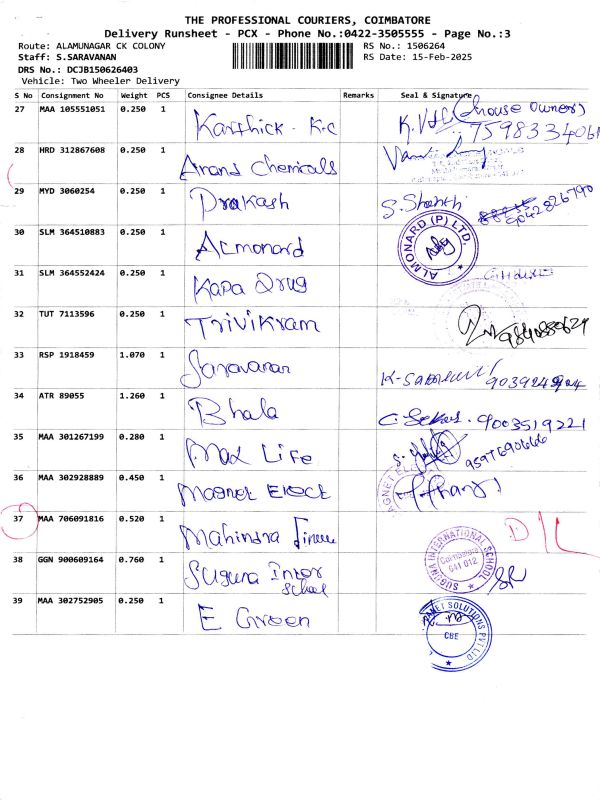 THE PROFESSIONAL COURIERS, COIMBATORE
Delivery Runsheet - PCX - Phone No.:0422-3505555 - Page No.:3
Route: ALAMUNAGAR CK COLONY RS No.: 1506264
Staff: S.SARAVANAN RS Date: 15-Feb-2025
DRS No.: DCJB150626403
Vehicle: Two Wheeler Delivery
S No Consignment No Weight PCS Consignee Details Remarks Seal & Signature
27 MAA 105551051 0.250 1 Karthick - K.C (House Owner)
7598334061
28 HRD 312867608 0.250 1 Anand Chemicals
29 MYD 3060254 0.250 1 Prakash S. Shanthi
9042826790
30 SLM 364510883 0.250 1 Almonard ALMONARD (P) LTD.
31 SLM 364552424 0.250 1 Kapa Drug
32 TUT 7113596 0.250 1 Trivikram
33 RSP 1918459 1.070 1 Saravanan
34 ATR 89055 1.260 1 Bhala C. Sekar. 9003519221
35 MAA 301267199 0.280 1 Max Life 9597690666
36 MAA 302928889 0.450 1 Magnet Elect
37 MAA 706091816 0.520 1 Mahindra D/L
38 GGN 900609164 0.760 1 Suguna Inter School SUGUNA INTERNATIONAL SCHOOL Coimbatore 641 012
39 MAA 302752905 0.250 1 E Green PLANET SOLUTIONS PVT LTD CBE